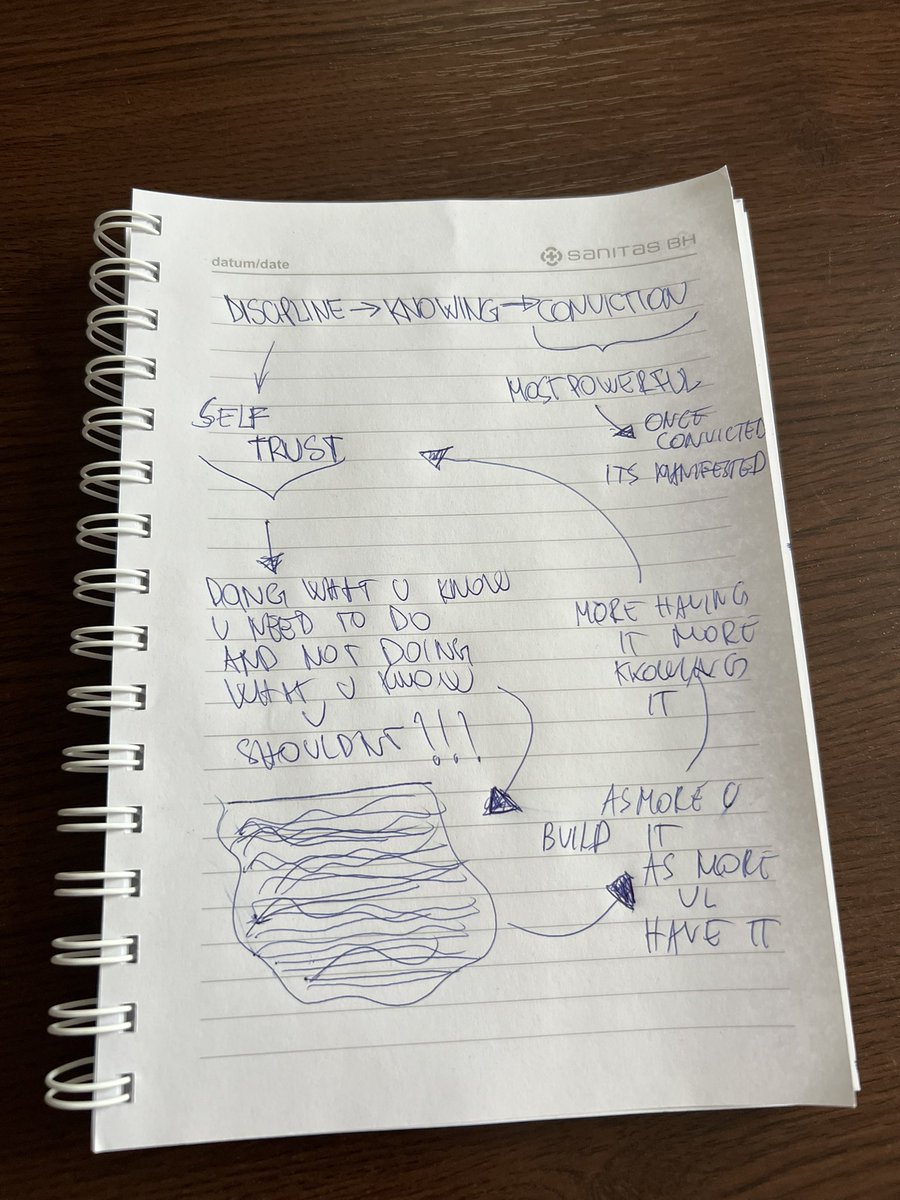 datum/date
SANITAS BH
DISCIPLINE → KNOWING → CONVICTION
MOST POWERFUL
ONCE
CONVICTED
ITS MANIFESTED
SELF
TRUST
DOING WHAT U KNOW
U NEED TO DO
AND NOT DOING
WHAT U KNOW
U
SHOULDNT!!!
MORE HAVING
IT MORE
KNOWING
IT
AS MORE U
BUILD IT
AS MORE
UL
HAVE IT